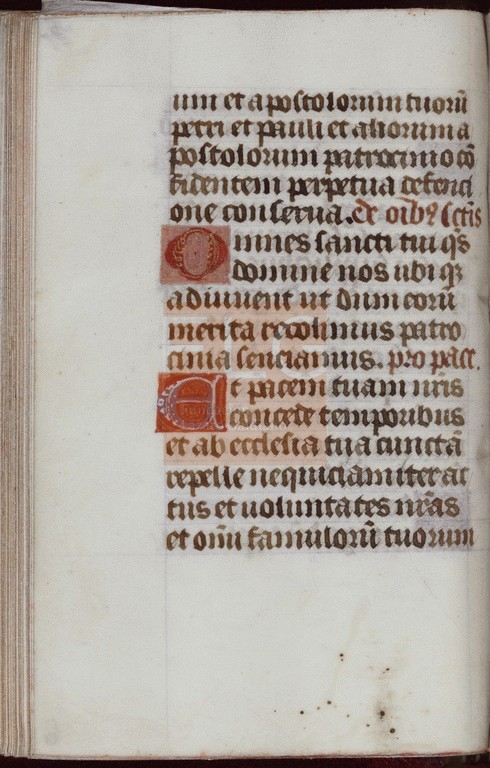 um et apostolorum tuoꝝ
petri et pauli et aliorum a
postolorum patrocinio cō
fidentem perpetua defenci
one conserua. de oīb⁹ sc̄tis
Omnes sancti tui q̄s
domine nos ubiqꝫ
adiuuent ut dum eorū
merita recolimus patro
cinia senciamus. pro pace.
Et pacem tuam nr̄is
concede temporibus
et ab ecclesia tua cunctā
repelle nequiciam iter ac
tus et uoluntates nr̄as
et om̄i famulorū tuorum